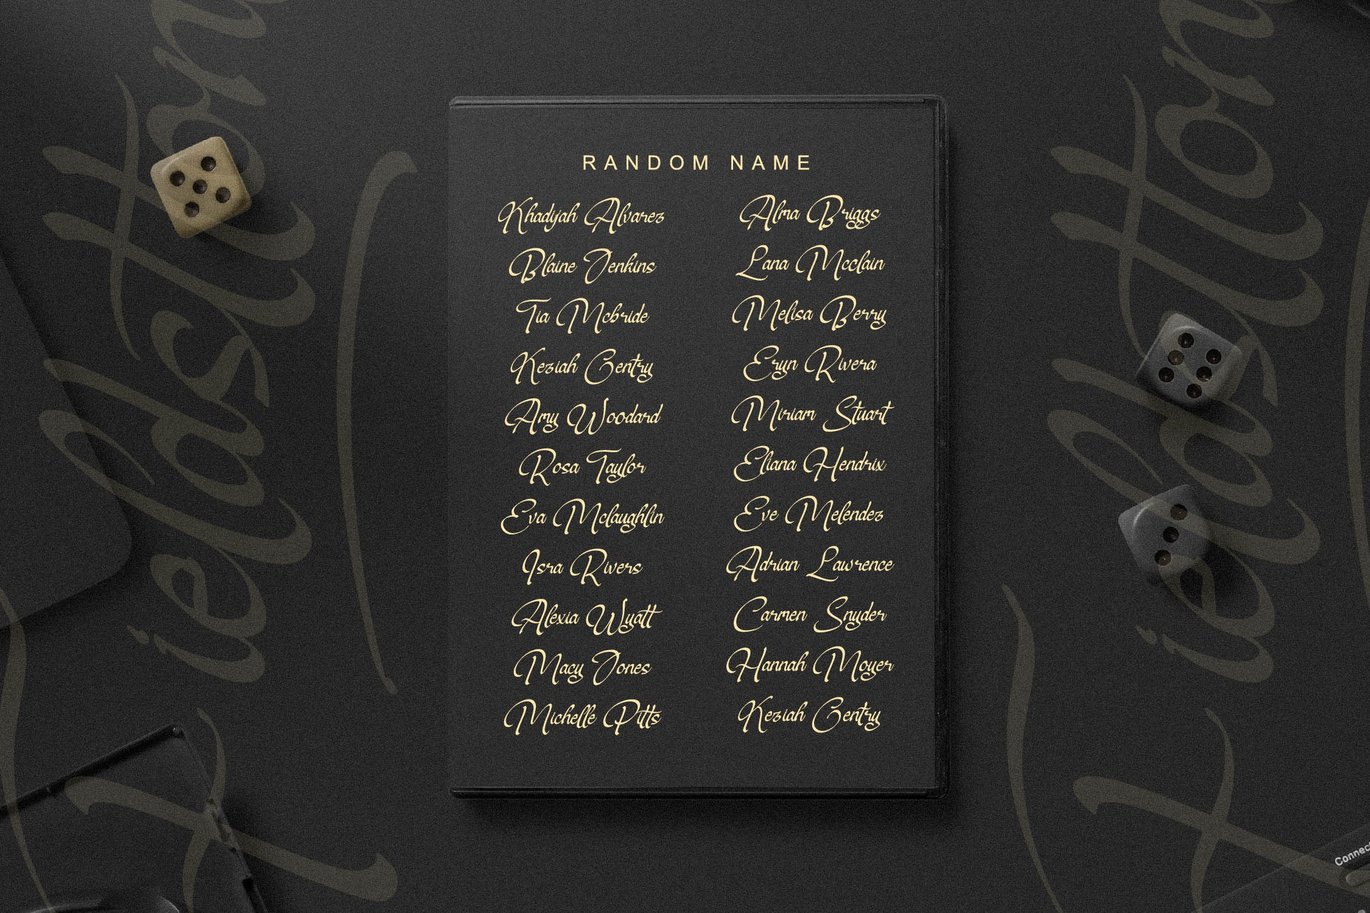 RANDOM NAME
Khadijah Alvarez
Blaine Jenkins
Tia Mcbride
Keziah Gentry
Amy Woodard
Rosa Taylor
Eva Mclaughlin
Isra Rivers
Alexia Wyatt
Macy Jones
Michelle Pitts
Alma Briggs
Lana Mcclain
Melisa Berry
Eryn Rivera
Miriam Stuart
Eliana Hendrix
Eve Melendez
Adrian Lawrence
Carmen Snyder
Hannah Moyer
Keziah Gentry